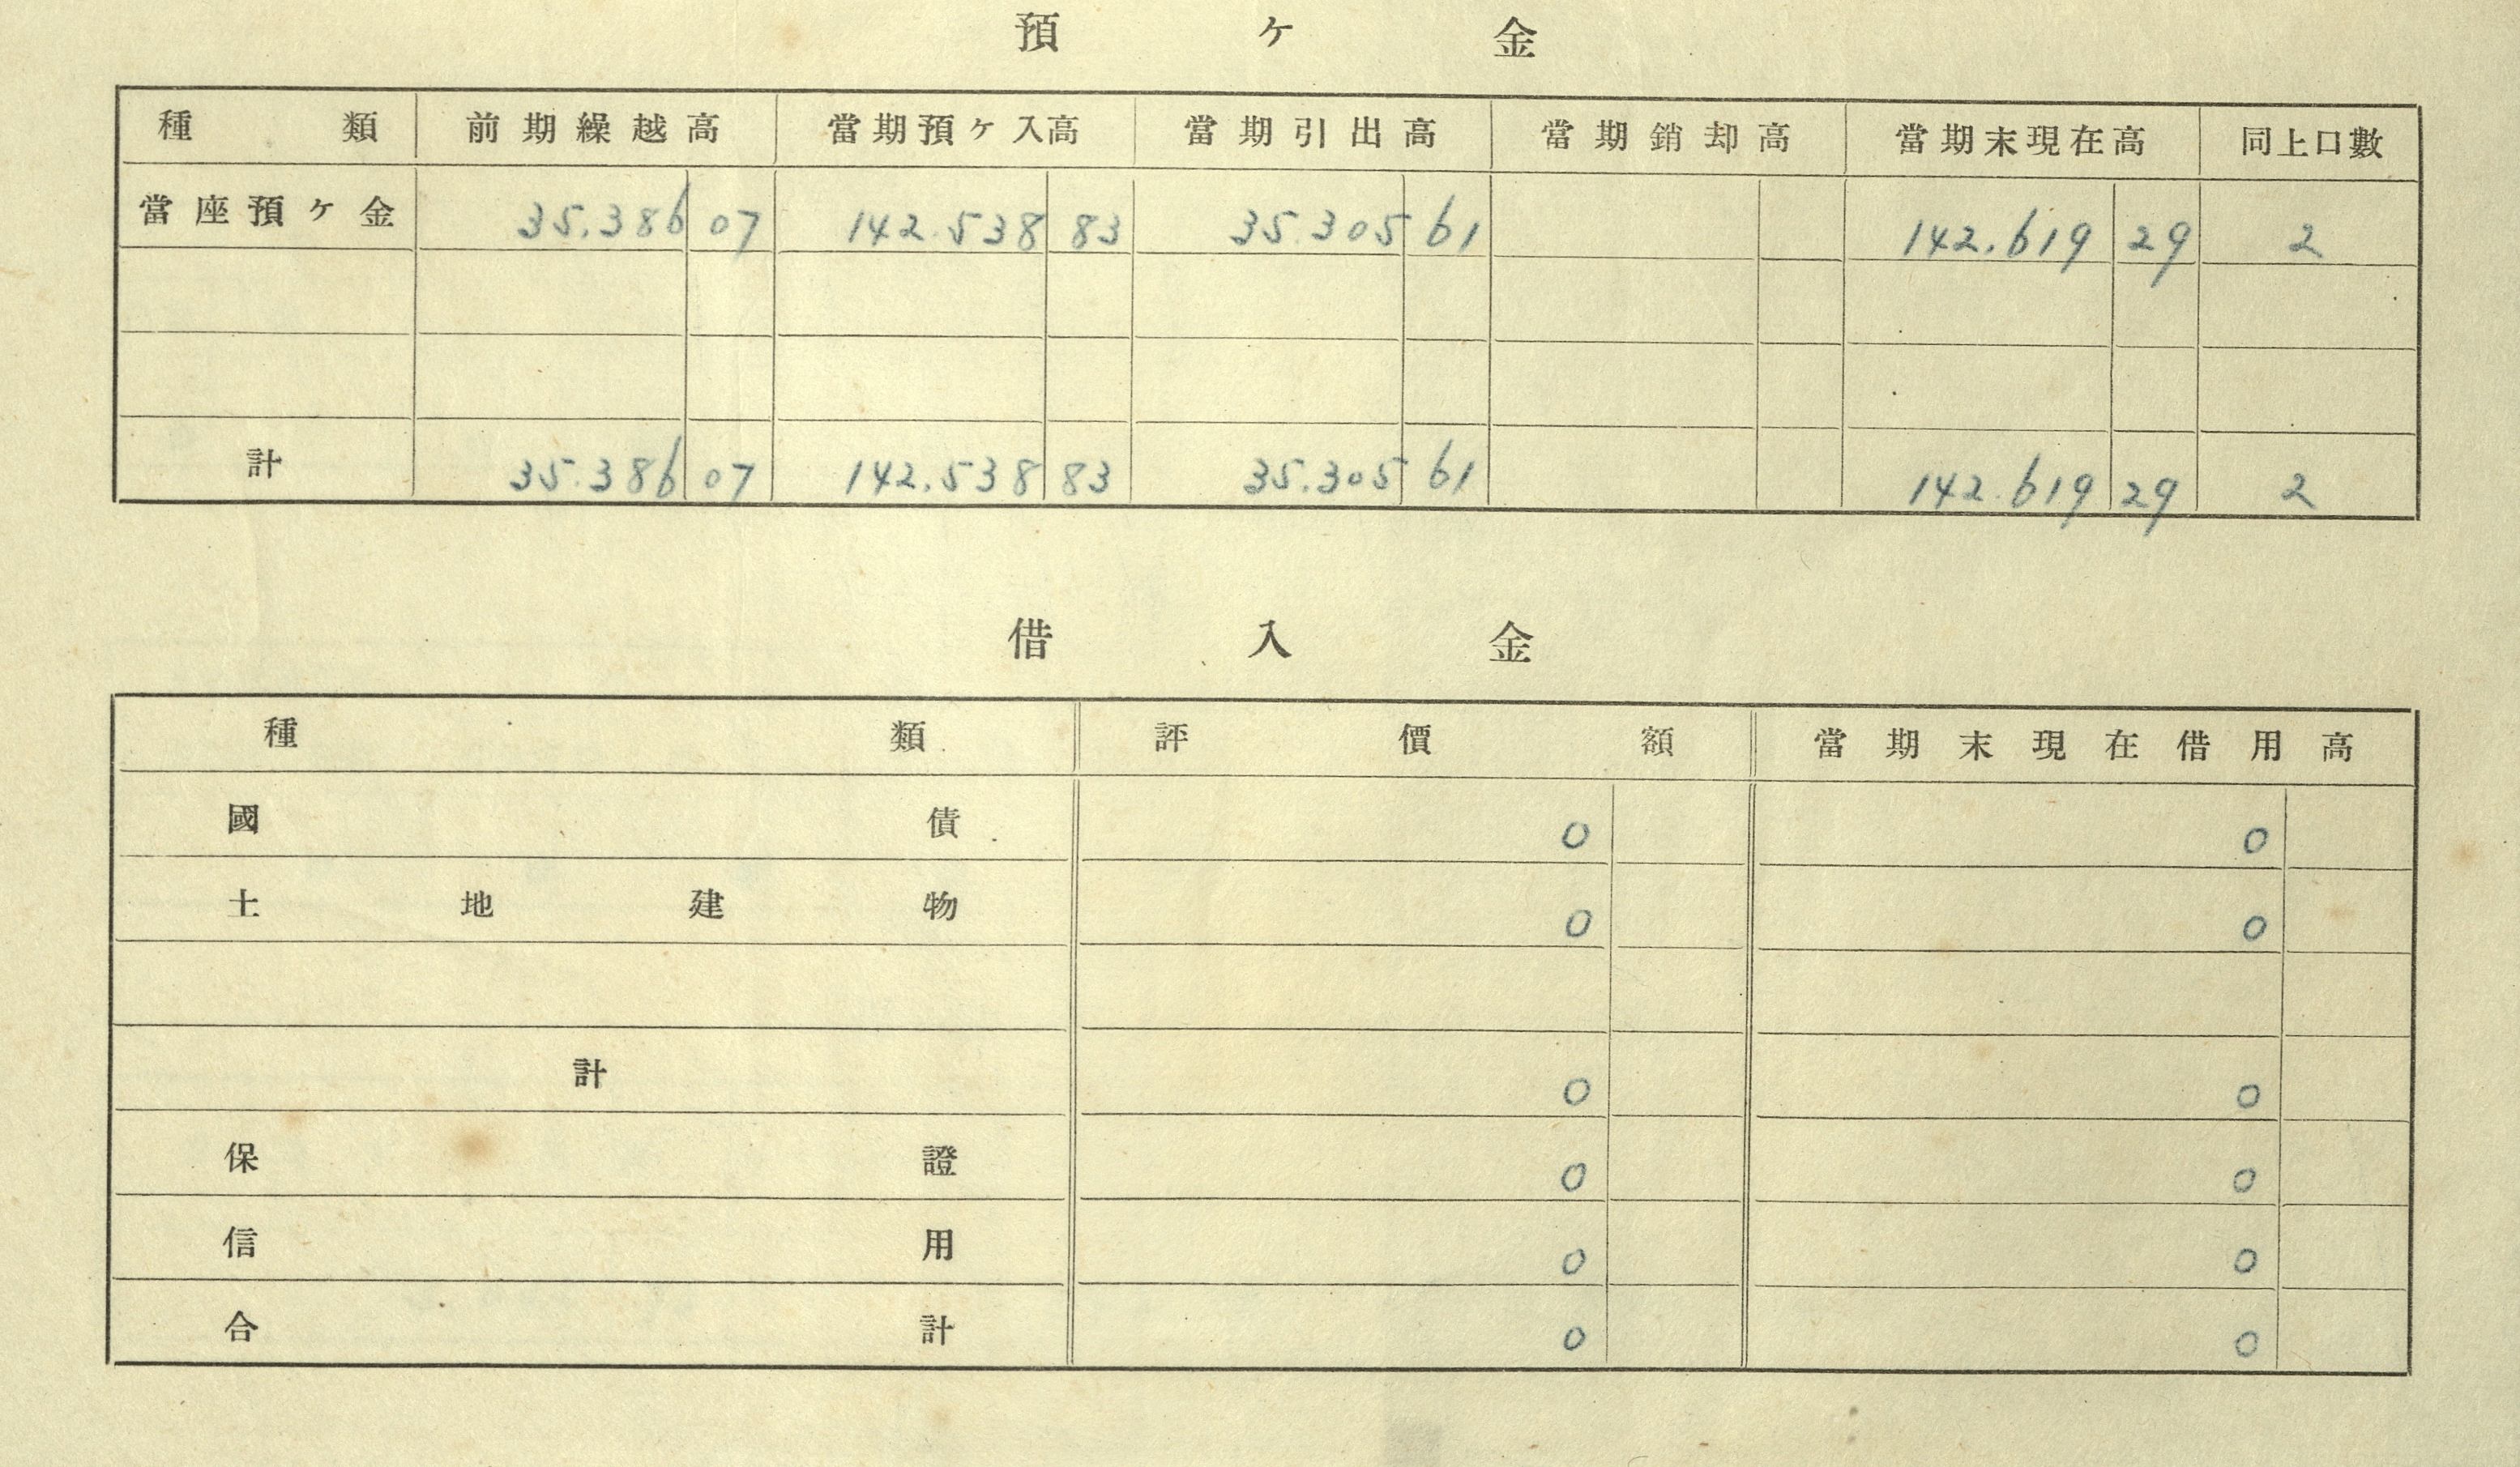 預ケ金
種類 前期繰越高 當期預ケ入高 當期引出高 當期銷却高 當期末現在高 同上口數
當座預ケ金 35.386 07 142.538 83 35.305 61 142.619 29 2
計 35.386 07 142.538 83 35.305 61 142.619 29 2
借入金
種類 評價額 當期末現在借用高
國債 0 0
土地建物 0 0
計 0 0
保證 0 0
信用 0 0
合計 0 0